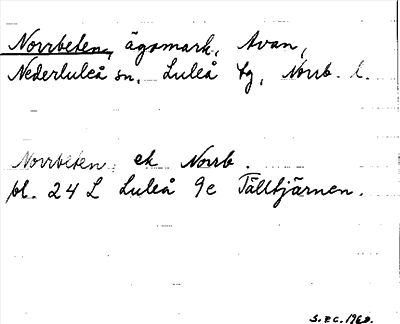 Norrbeten, ägomark, Avan,
Nederluleå sn, Luleå tg, Norrb. l.
Norrbeten ek Norrb.
bl. 24 L Luleå 9c Tälltjärnen.
S.EC. 1960.